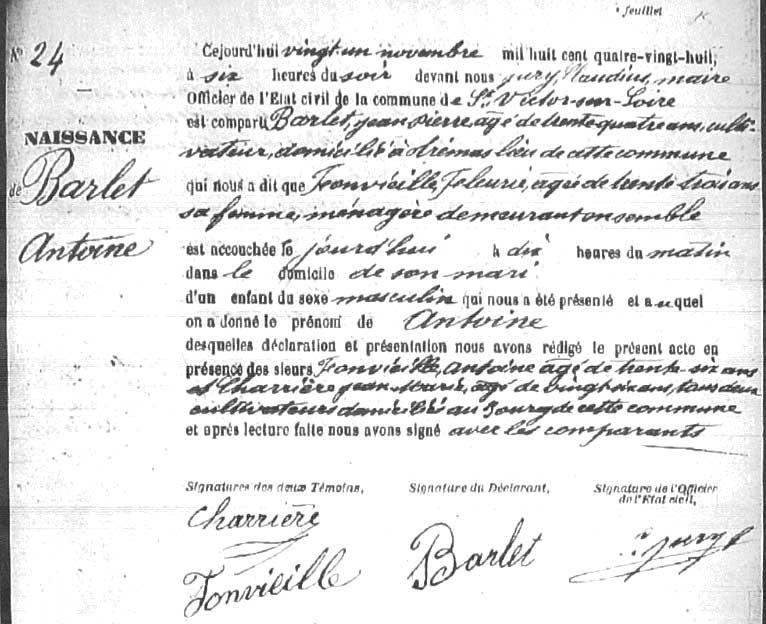 feuillet
Nº 24
NAISSANCE
de Barlet
Antoine
Cejourd'hui vingt un novembre mil huit cent quatre-vingt-huit,
à six heures du soir devant nous jury Claudius, maire
Officier de l'Etat civil de la commune de St Victor-sur-Loire
est comparu Barlet, jean pierre, agé de trente quatre ans, culti-
vateur, domicilié à trémas lieu de cette commune
qui nous a dit que Fonvieille, Fleurie, agée de trente trois ans
sa femme, ménagère demeurant ensemble
est accouchée le jourd'hui à dix heures du matin
dans le domicile de son mari
d'un enfant du sexe masculin qui nous a été présenté et auquel
on a donné le prénom de Antoine
desquelles déclaration et présentation nous avons rédigé le présent acte en
présence des sieurs Fonvieille, Antoine âgé de trente-six ans
et Charrière jean Marie, agé de vingt six ans, tous deux
cultivateurs domiciliés au Bourg de cette commune
et après lecture faite nous avons signé avec les comparants
Signatures des deux Témoins,
Signature du Déclarant,
Signature de l'Officier
de l'Etat civil,
Charrière
Fonvieille
Barlet
jury